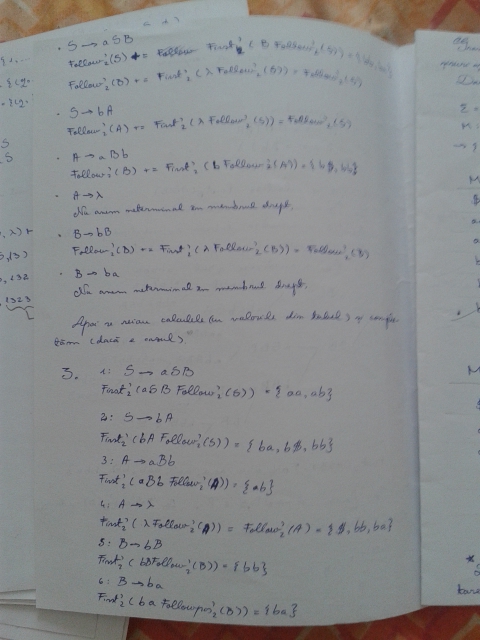 · S → aSB
Follow'₂(S) += First'₂(B Follow'₂(S)) = {bb, ba}
Follow'₂(B) += First'₂(λ Follow'₂(S)) = Follow'₂(S)
· S → bA
Follow'₂(A) += First'₂(λ Follow'₂(S)) = Follow'₂(S)
· A → aBb
Follow'₂(B) += First'₂(b Follow'₂(A)) = {b$, bb}
· A → λ
Nu avem neterminal în membrul drept.
· B → bB
Follow'₂(B) += First'₂(λ Follow'₂(B)) = Follow'₂(B)
· B → ba
Nu avem neterminal în membrul drept.
Apoi se reiau calculele (cu valorile din tabel) și
(dacă e cazul)
3. 1: S → aSB
First'₂(aSB Follow'₂(S)) = {aa, ab}
2: S → bA
First'₂(bA Follow'₂(S)) = {ba, b$, bb}
3: A → aBb
First'₂(aBb Follow'₂(A)) = {ab}
4: A → λ
First'₂(λ Follow'₂(A)) = Follow'₂(A) = {$, bb, ba}
5: B → bB
First'₂(bB Follow'₂(B)) = {bb}
6: B → ba
First'₂(ba Follow'₂(B)) = {ba}